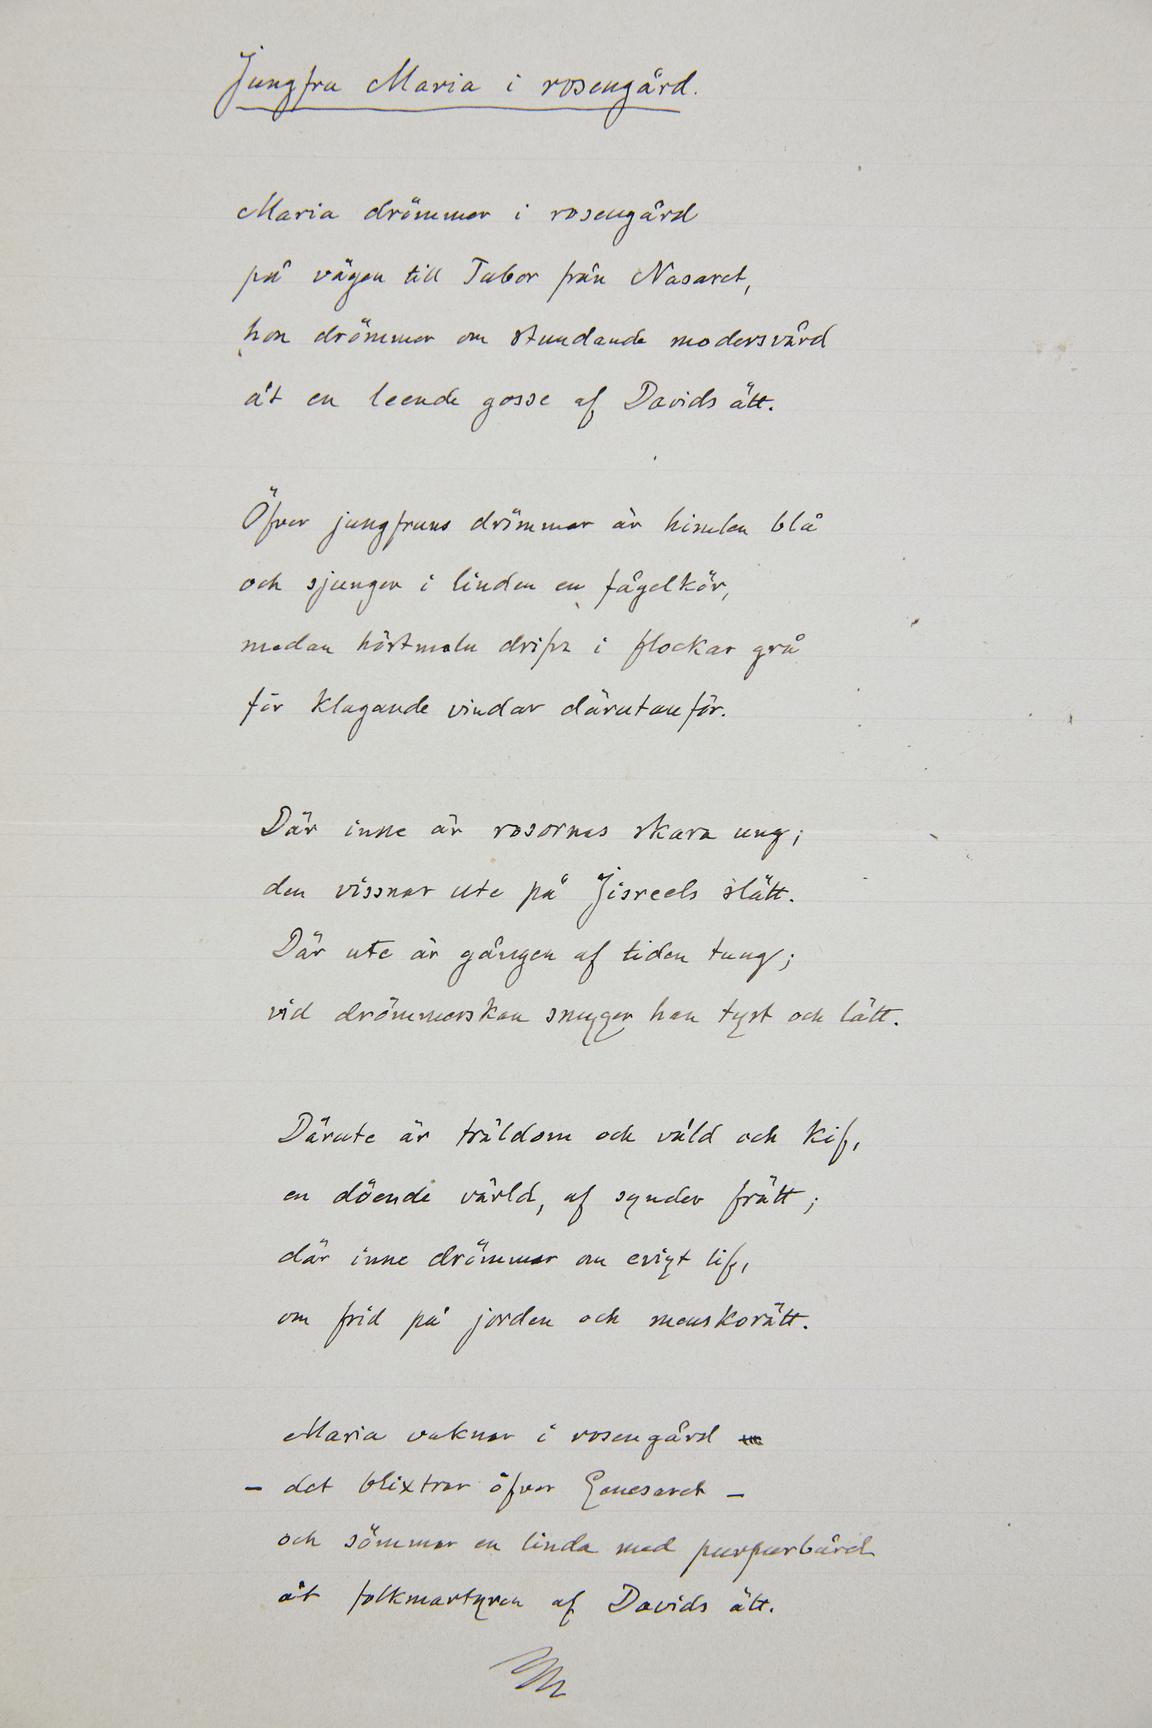 Jungfru Maria i rosengård.
Maria drömmer i rosengård
på vägen till Tabor från Nasaret,
hon drömmer om stundande modersvård
åt en leende gosse af Davids ätt.
Öfver jungfruns drömmar är himlen blå
och sjunger i linden en fågelkör,
medan höstmoln drifva i flockar grå
för klagande vindar därutanför.
Där inne är rosornas skara ung;
den vissnar ute på Jisreels slätt.
Där ute är gången af tiden tung;
vid drömmerskan smyger han tyst och lätt.
Därute är träldom och våld och kif,
en döende värld, af synder frätt;
där inne drömmar om evigt lif,
om frid på jorden och menskorätt.
Maria vaknar i rosengård
– det blixtrar öfver Genesaret –
och sömmar en linda med purpurbård
åt folkmartyren af Davids ätt.